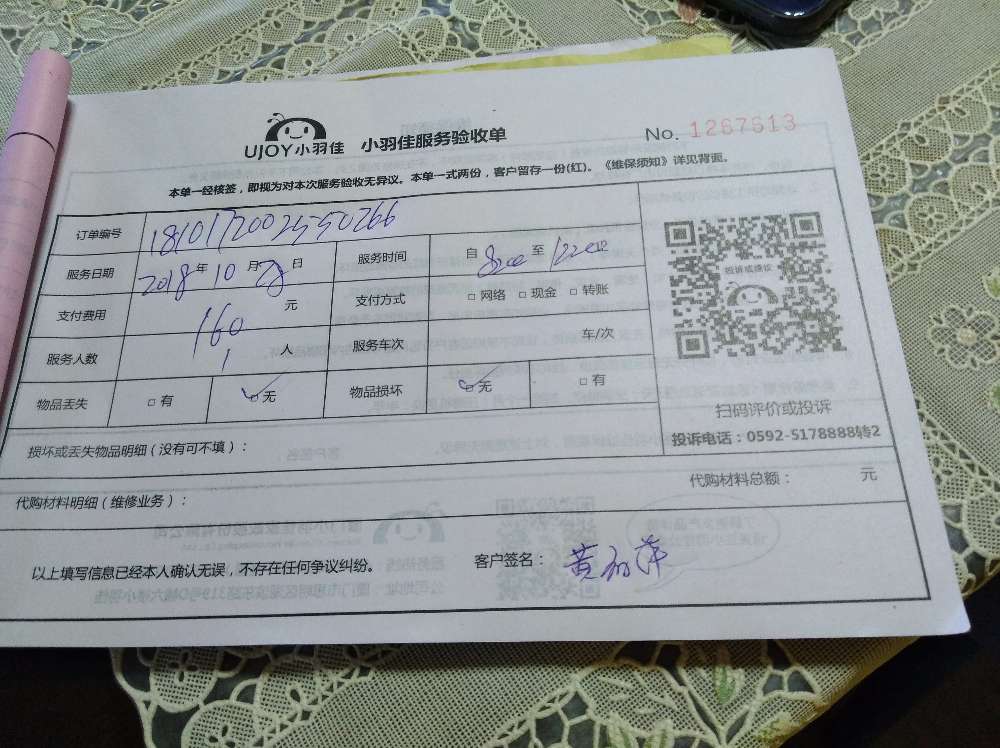 UJOY小羽佳 小羽佳服务验收单 No. 1267613
本单一经核签，即视为对本次服务验收无异议。本单一式两份，客户留存一份(红)。《维保须知》详见背面。
订单编号 18101720025550266
服务日期 2018年10月28日 服务时间 自 8:00 至 12:00
支付费用 160 元 支付方式 □ 网络 □ 现金 □ 转账
服务人数 1 人 服务车次 车/次
物品丢失 □ 有 ☑ 无 物品损坏 ☑ 无 □ 有
投诉或建议
扫码评价或投诉
投诉电话：0592-5178888转2
损坏或丢失物品明细（没有可不填）：
代购材料明细（维修业务）： 代购材料总额： 元
以上填写信息已经本人确认无误，不存在任何争议纠纷。 客户签名： 黄 萍